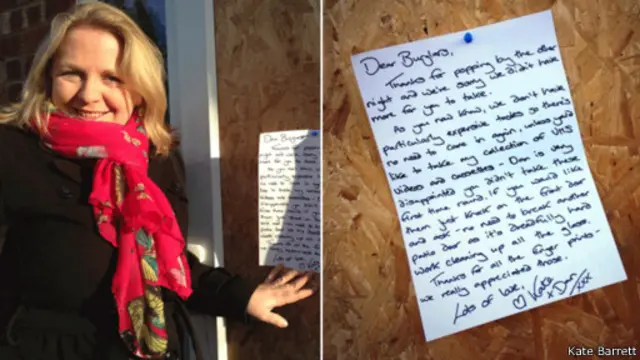 Dear Burglars,
Thanks for popping by the other
night and we're sorry we didn't have
more for you to take.
As you now know, we don't have
particularly expensive tastes so there's
no need to come in again, unless you'd
like to take my collection of VHS
videos and cassettes - Dan is very
disappointed you didn't take these
first time round. If you would like
them just knock on the front door
and ask - no need to break another
patio door as it's dreadfully hard
work cleaning up all the glass.
Thanks for all the finger prints -
we really appreciated those.
Lots of love,
Kate x Dan xx
Kate Barrett